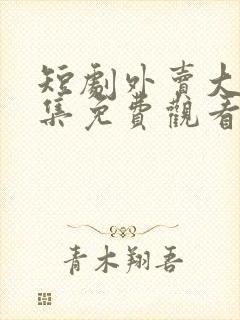 短劇外賣大
集免費觀看
青木翔吾